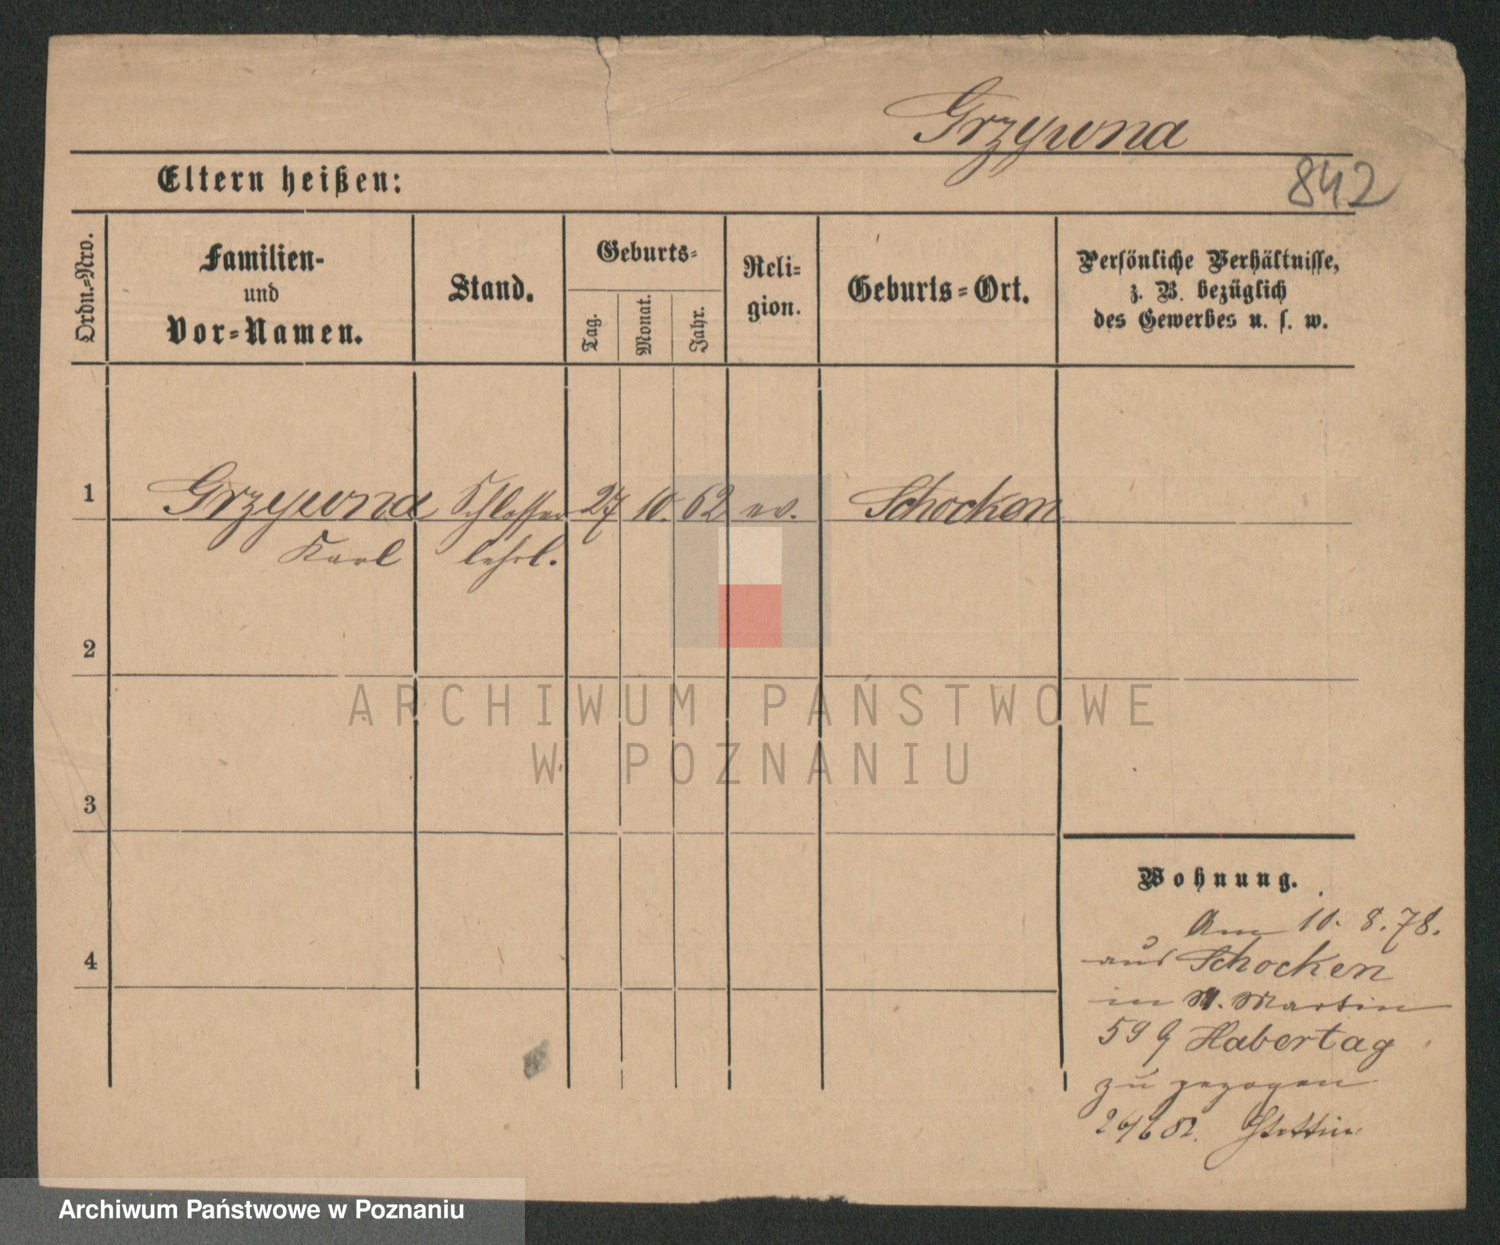 Grzywna
842
Eltern heißen:
Ordn.-Nro.
Familien-
und
Vor-Namen.
Stand.
Geburts-
Tag.
Monat.
Jahr.
Reli-
gion.
Geburts-Ort.
Persönliche Verhältnisse,
z. B. bezüglich
des Gewerbes u. s. w.
1
Grzywna Schlosser 27 10. 62 ev. Schocken
Karl lehrl.
2
ARCHIWUM PAŃSTWOWE
W POZNANIU
3
Wohnung.
Am 10. 8. 78.
aus Schocken
4
in St. Martin
59 Habertag
zu gezogen
Stettin
Archiwum Państwowe w Poznaniu